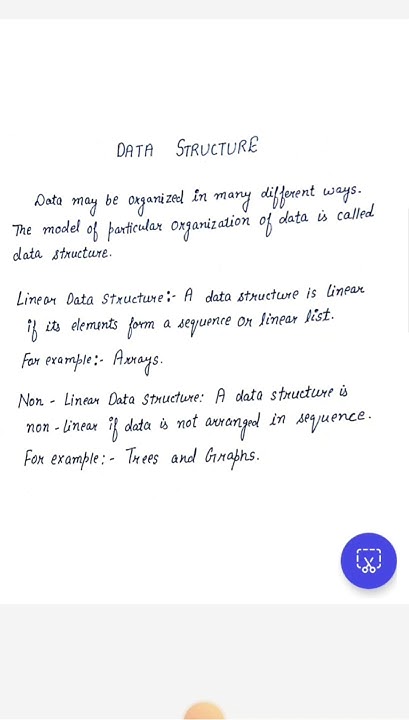 DATA STRUCTURE
Data may be organized in many different ways.
The model of particular organization of data is called
data structure.
Linear Data Structure:- A data structure is linear
if its elements form a sequence or linear list.
For example:- Arrays.
Non - Linear Data Structure: A data structure is
non-linear if data is not arranged in sequence.
For example:- Trees and Graphs.